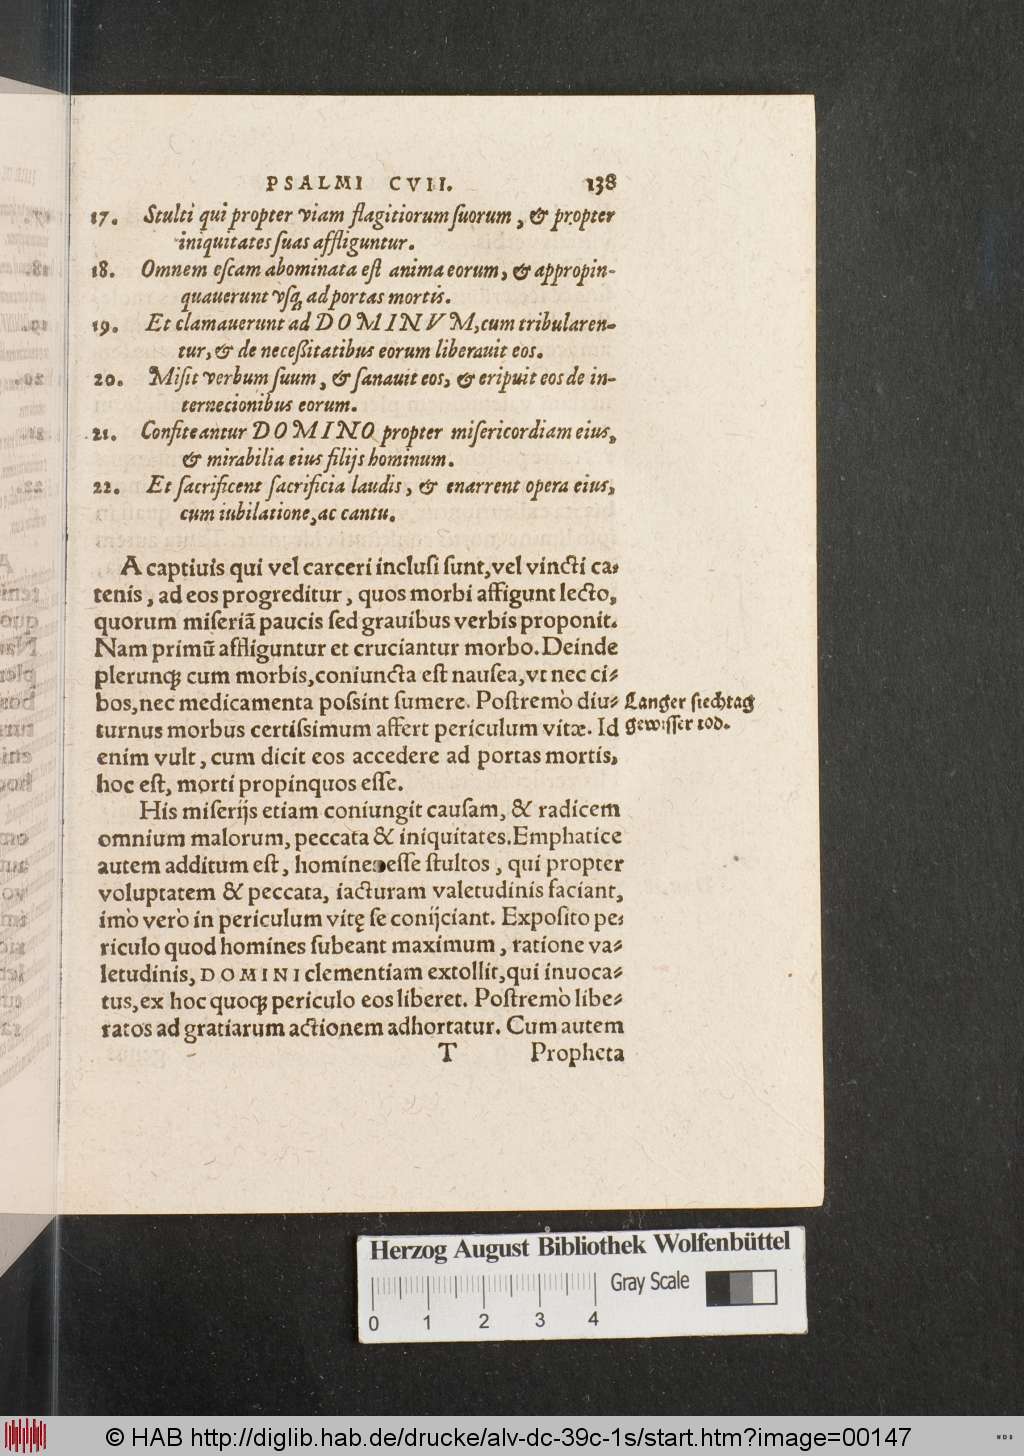 PSALMI CVII. 138
17. Stulti qui propter viam flagitiorum ſuorum, & propter
iniquitates ſuas affliguntur.
18. Omnem eſcam abominata eſt anima eorum, & appropin-
quauerunt vſq̃ ad portas mortis.
19. Et clamauerunt ad DOMINVM, cum tribularen-
tur, & de neceßitatibus eorum liberauit eos.
20. Miſit verbum ſuum, & ſanauit eos, & eripuit eos de in-
ternecionibus eorum.
21. Confiteantur DOMINO propter miſericordiam eius,
& mirabilia eius filijs hominum.
22. Et ſacrificent ſacrificia laudis, & enarrent opera eius,
cum iubilatione, ac cantu.
A captiuis qui vel carceri incluſi ſunt, vel vincti ca-
tenis, ad eos progreditur, quos morbi affigunt lecto,
quorum miſeriã paucis ſed grauibus verbis proponit.
Nam primũ affliguntur et cruciantur morbo. Deinde
plerunq; cum morbis, coniuncta eſt nauſea, vt nec ci-
bos, nec medicamenta poſsint ſumere. Poſtremò diu-
turnus morbus certiſsimum affert periculum vitæ. Id
enim vult, cum dicit eos accedere ad portas mortis,
hoc eſt, morti propinquos eſſe.
Langer ſiechtag
gewiſſer tod.
His miſerijs etiam coniungit cauſam, & radicem
omnium malorum, peccata & iniquitates. Emphatice
autem additum eſt, homines eſſe ſtultos, qui propter
voluptatem & peccata, iacturam valetudinis faciant,
imò verò in periculum vitę ſe conijciant. Expoſito pe-
riculo quod homines ſubeant maximum, ratione va-
letudinis, DOMINI clementiam extollit, qui inuoca-
tus, ex hoc quoq; periculo eos liberet. Poſtremò libe-
ratos ad gratiarum actionem adhortatur. Cum autem
T Propheta
Herzog August Bibliothek Wolfenbüttel
Gray Scale
0 1 2 3 4
© HAB http://diglib.hab.de/drucke/alv-dc-39c-1s/start.htm?image=00147